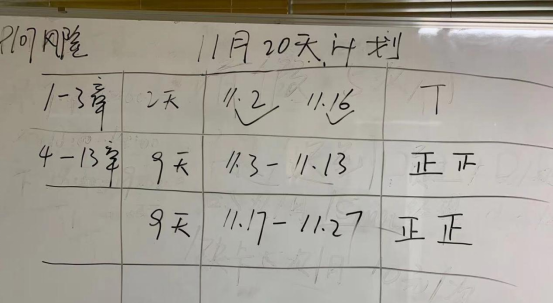 风险 11月20天计划
1-3章 2天 11.2 11.16 T
4-13章 9天 11.3-11.13 正正
9天 11.17-11.27 正正